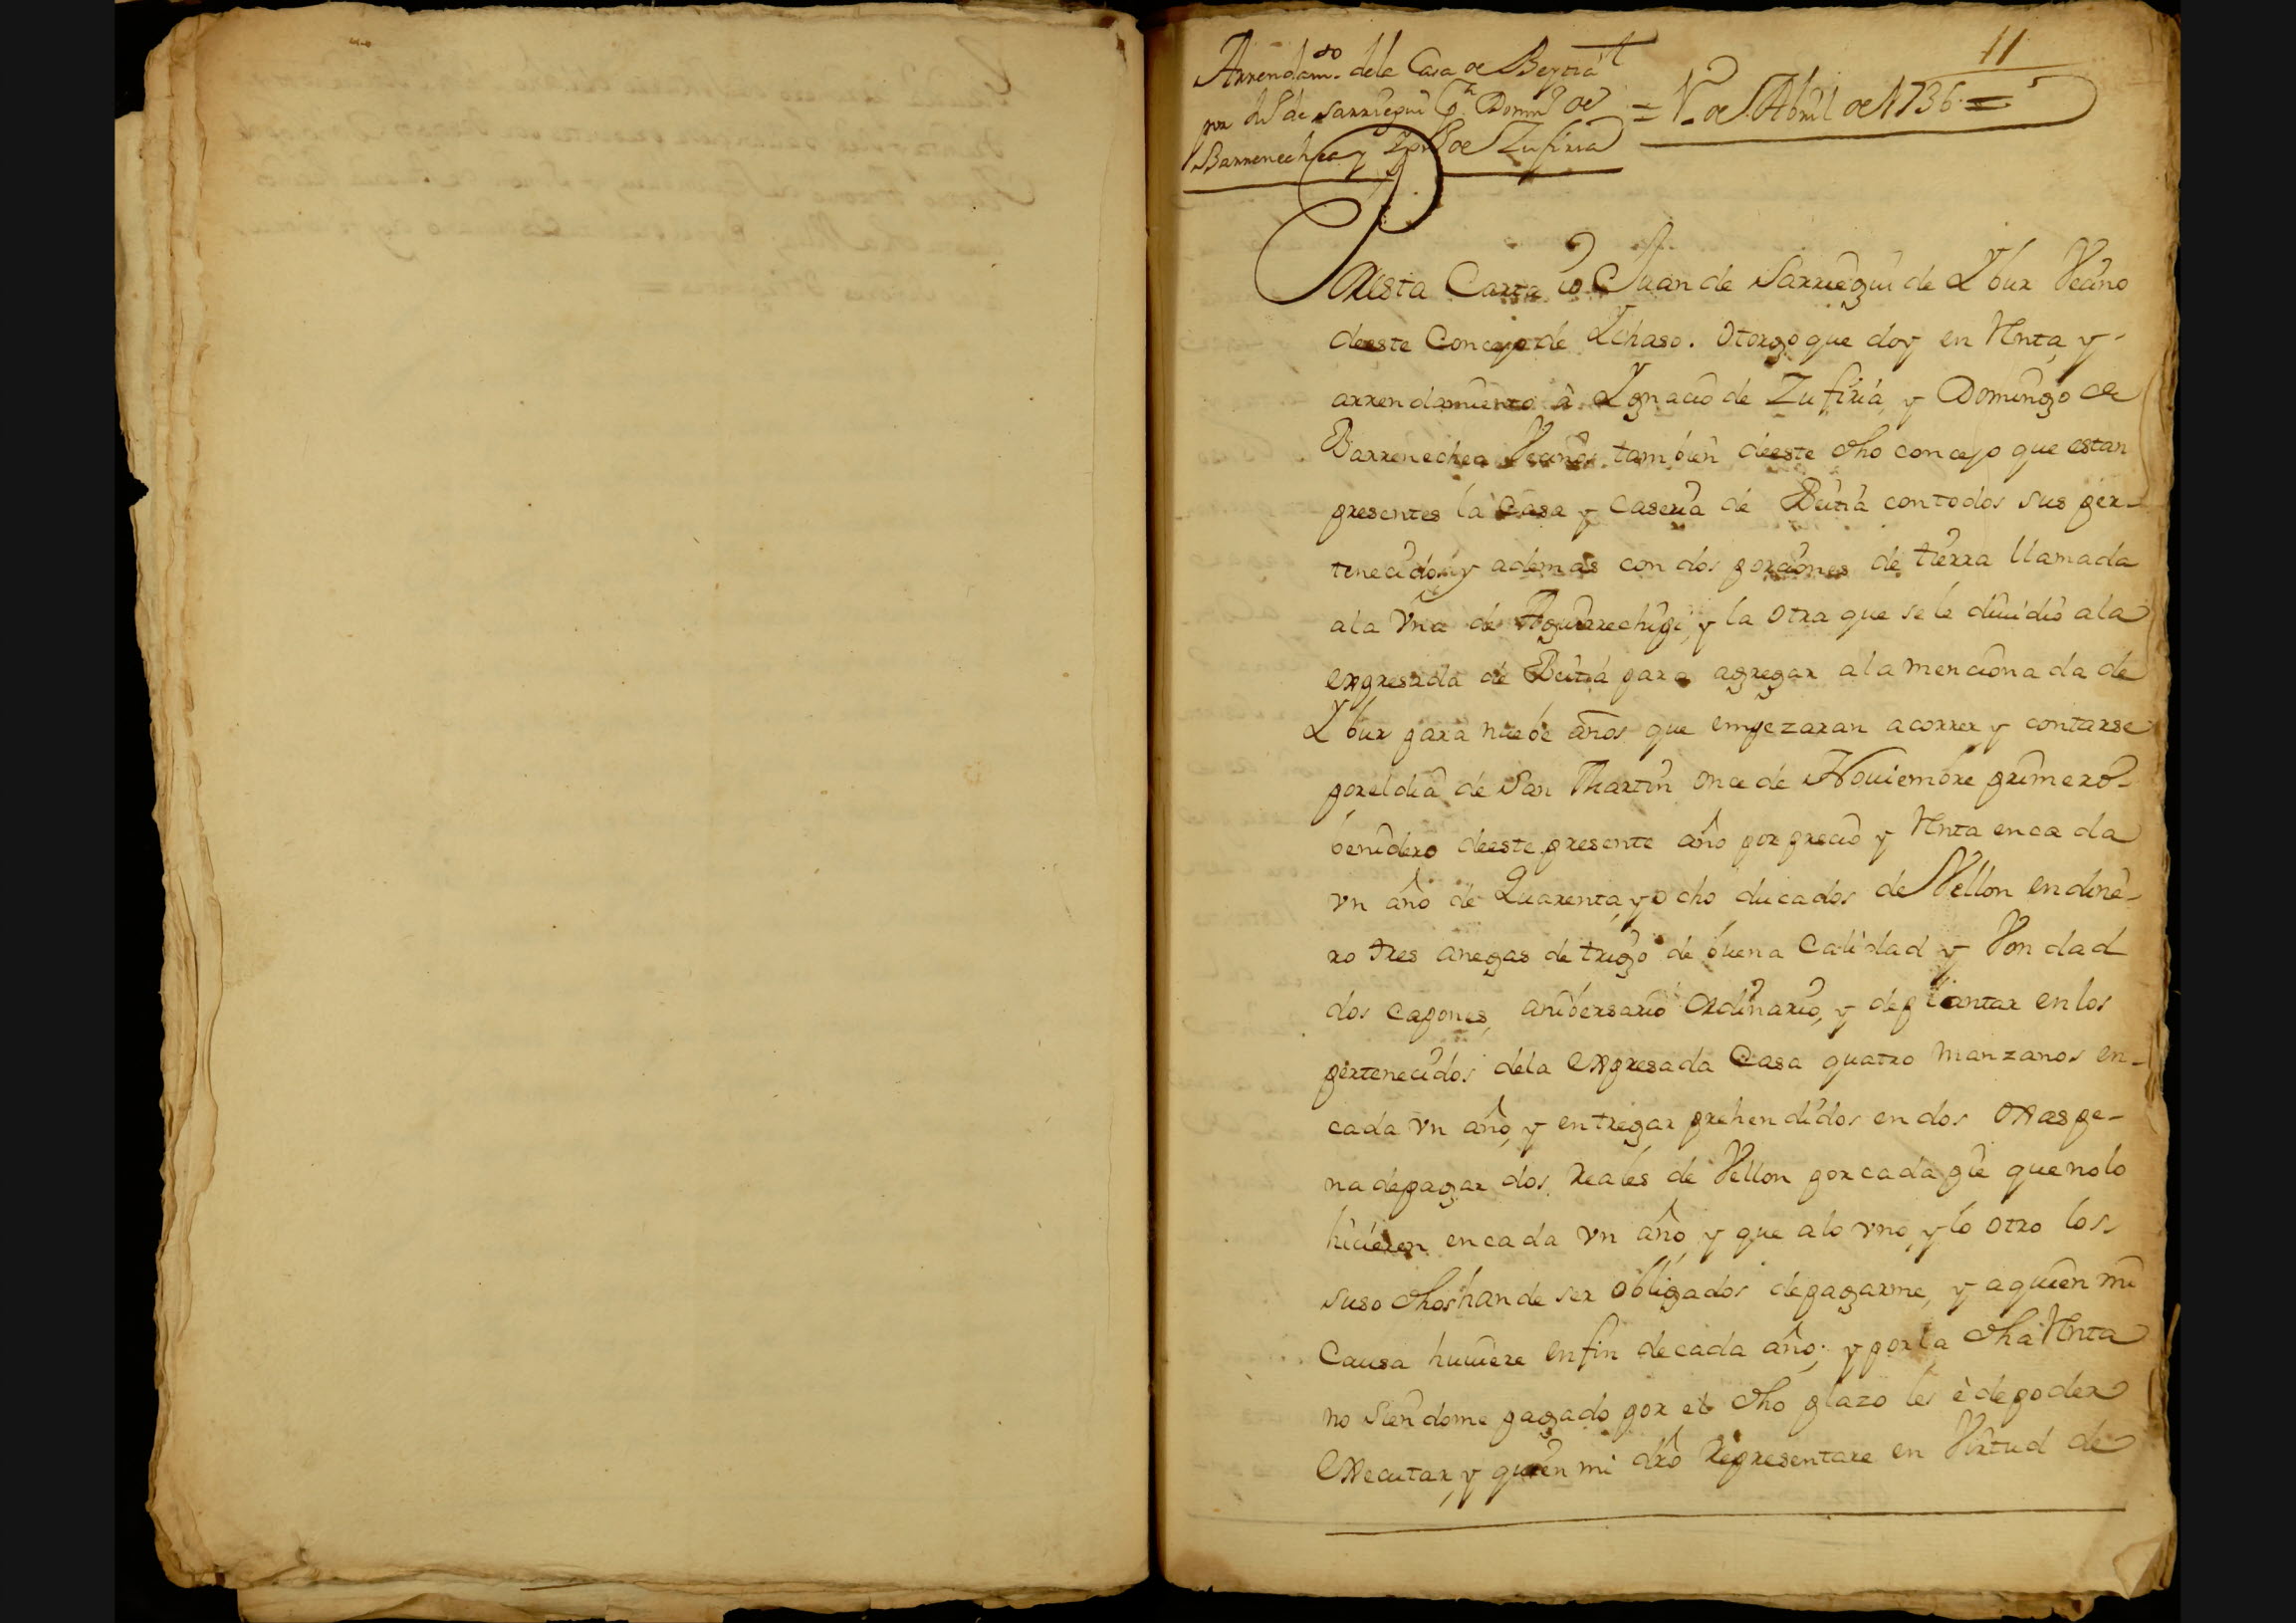 11
Arrendam.to dela Casa de Beytia
por Ju.o de Sarriegui a Domin.o de
Barrenechea y Ign.o de Zufiria
= 1.o de Abril de 1736 =
Por esta Carta io Juan de Sarriegui de Ybur Vecino
deeste Concejo de Ychaso. Otorgo que doy en Renta y
arrendamiento à Ygnacio de Zufiria, y Domingo de
Barrenechea Vecinos tambien deeste dho concejo que estan
presentes la Casa y Caseria de Beitia contodos sus per-
tenecidos y ademas con dos porciones de tierra llamada
ala Vna de Aguirrechigi, y la otra que se le diuidio ala
expresada de Beitia para agregar ala mencionada de
Ybur para nuebe años que empezaran acorrer y contarse
poreldia de San Martin once de Nouiembre primero
benidero deeste presente año por precio y Renta encada
vn año de Quarenta, y ocho ducados de Vellon endine-
ro tres anegas de trigo de buena Calidad y Vondad
dos capones, anibersario Ordinario, y deplantar enlos
pertenecidos dela expresada Casa quatro manzanos en-
cada vn año, y entregar prehendidos endos oxas pe-
na depagar dos Reales de Vellon porcada pie quenolo
hicieren encada vn año, y que alo vno, y lo otro los
suso dhos hande ser obligados depagarme, y aquien mi
Causa huuiere enfin decada año; y porla dha Renta
no siendome pagado por el dho plazo les è depoder
executar, y quien mi dro Representare en Virtud de